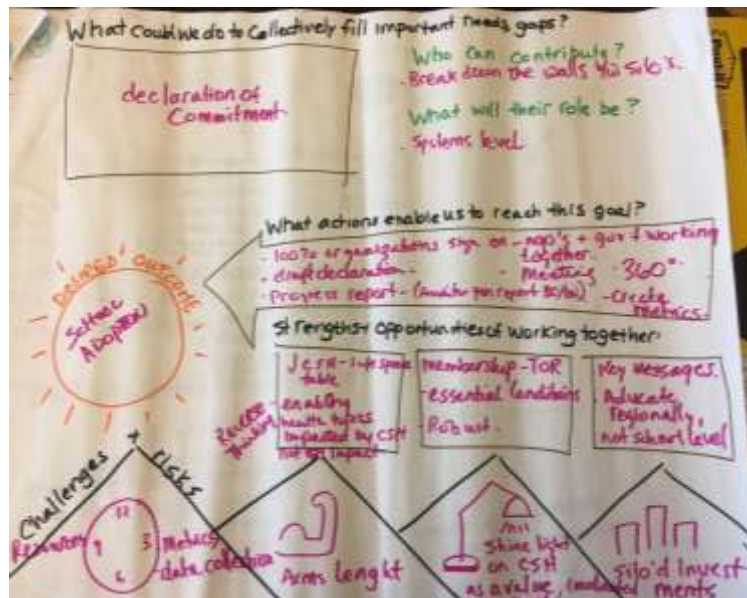 What could we do to collectively fill important needs gaps?
declaration of
Commitment
Who can contribute?
- Break down the walls
What will their role be?
- Systems level
What actions enable us to reach this goal?
- 100% organizations sign on - ngo's + gov't working
together.
- draft declaration.
- Meeting
- 360°.
- Progress report -
- Create
metrics.
DESIRED OUTCOME
School
ADOPTION
Strengths + Opportunities of working together
table
- enabling
health
impacted by CSH
not
Reverse
thinking
membership - TOR
- essential Conditions
- Robust.
Key Messages.
- Advocate
regionally,
not school level
Challenges + risks
12
9
3
6
Metrics
data collection
Arms lenght
Shine light
on CSH
as a value,
Silo'd Invest
ments